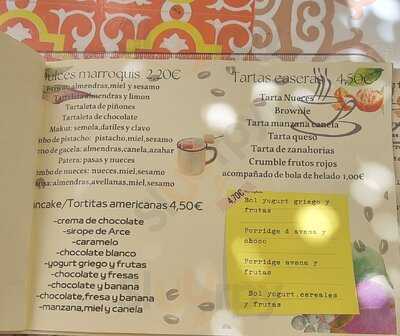 ulces marroquis 2,20€
almendras,miel y sesamo
Tartaleta almendras y limon
Tartaleta de piñones
Tartaleta de chocolate
Makut: semola,datiles y clavo
mbo de pistacho: pistacho,miel,sesamo
rno de gacela: almendras,canela,azahar
Patera: pasas y nueces
mbo de nueces: nueces,miel,sesamo
almendras,avellanas,miel,sesamo
ancake/Tortitas americanas 4,50€
-crema de chocolate
-sirope de Arce
-caramelo
-chocolate blanco
-yogurt griego y frutas
-chocolate y fresas
-chocolate y banana
-chocolate,fresa y banana
-manzana,miel y canela
Tartas caseras 4,50€
Tarta Nueces
Brownie
Tarta manzana canela
Tarta queso
Tarta de zanahorias
Crumble frutos rojos
acompañado de bola de helado 1,00€
4,70€
Bol yogurt griego y
frutas
Porridge d avena y
choco
Porridge avena y
frutas
Bol yogurt,cereales
y frutas